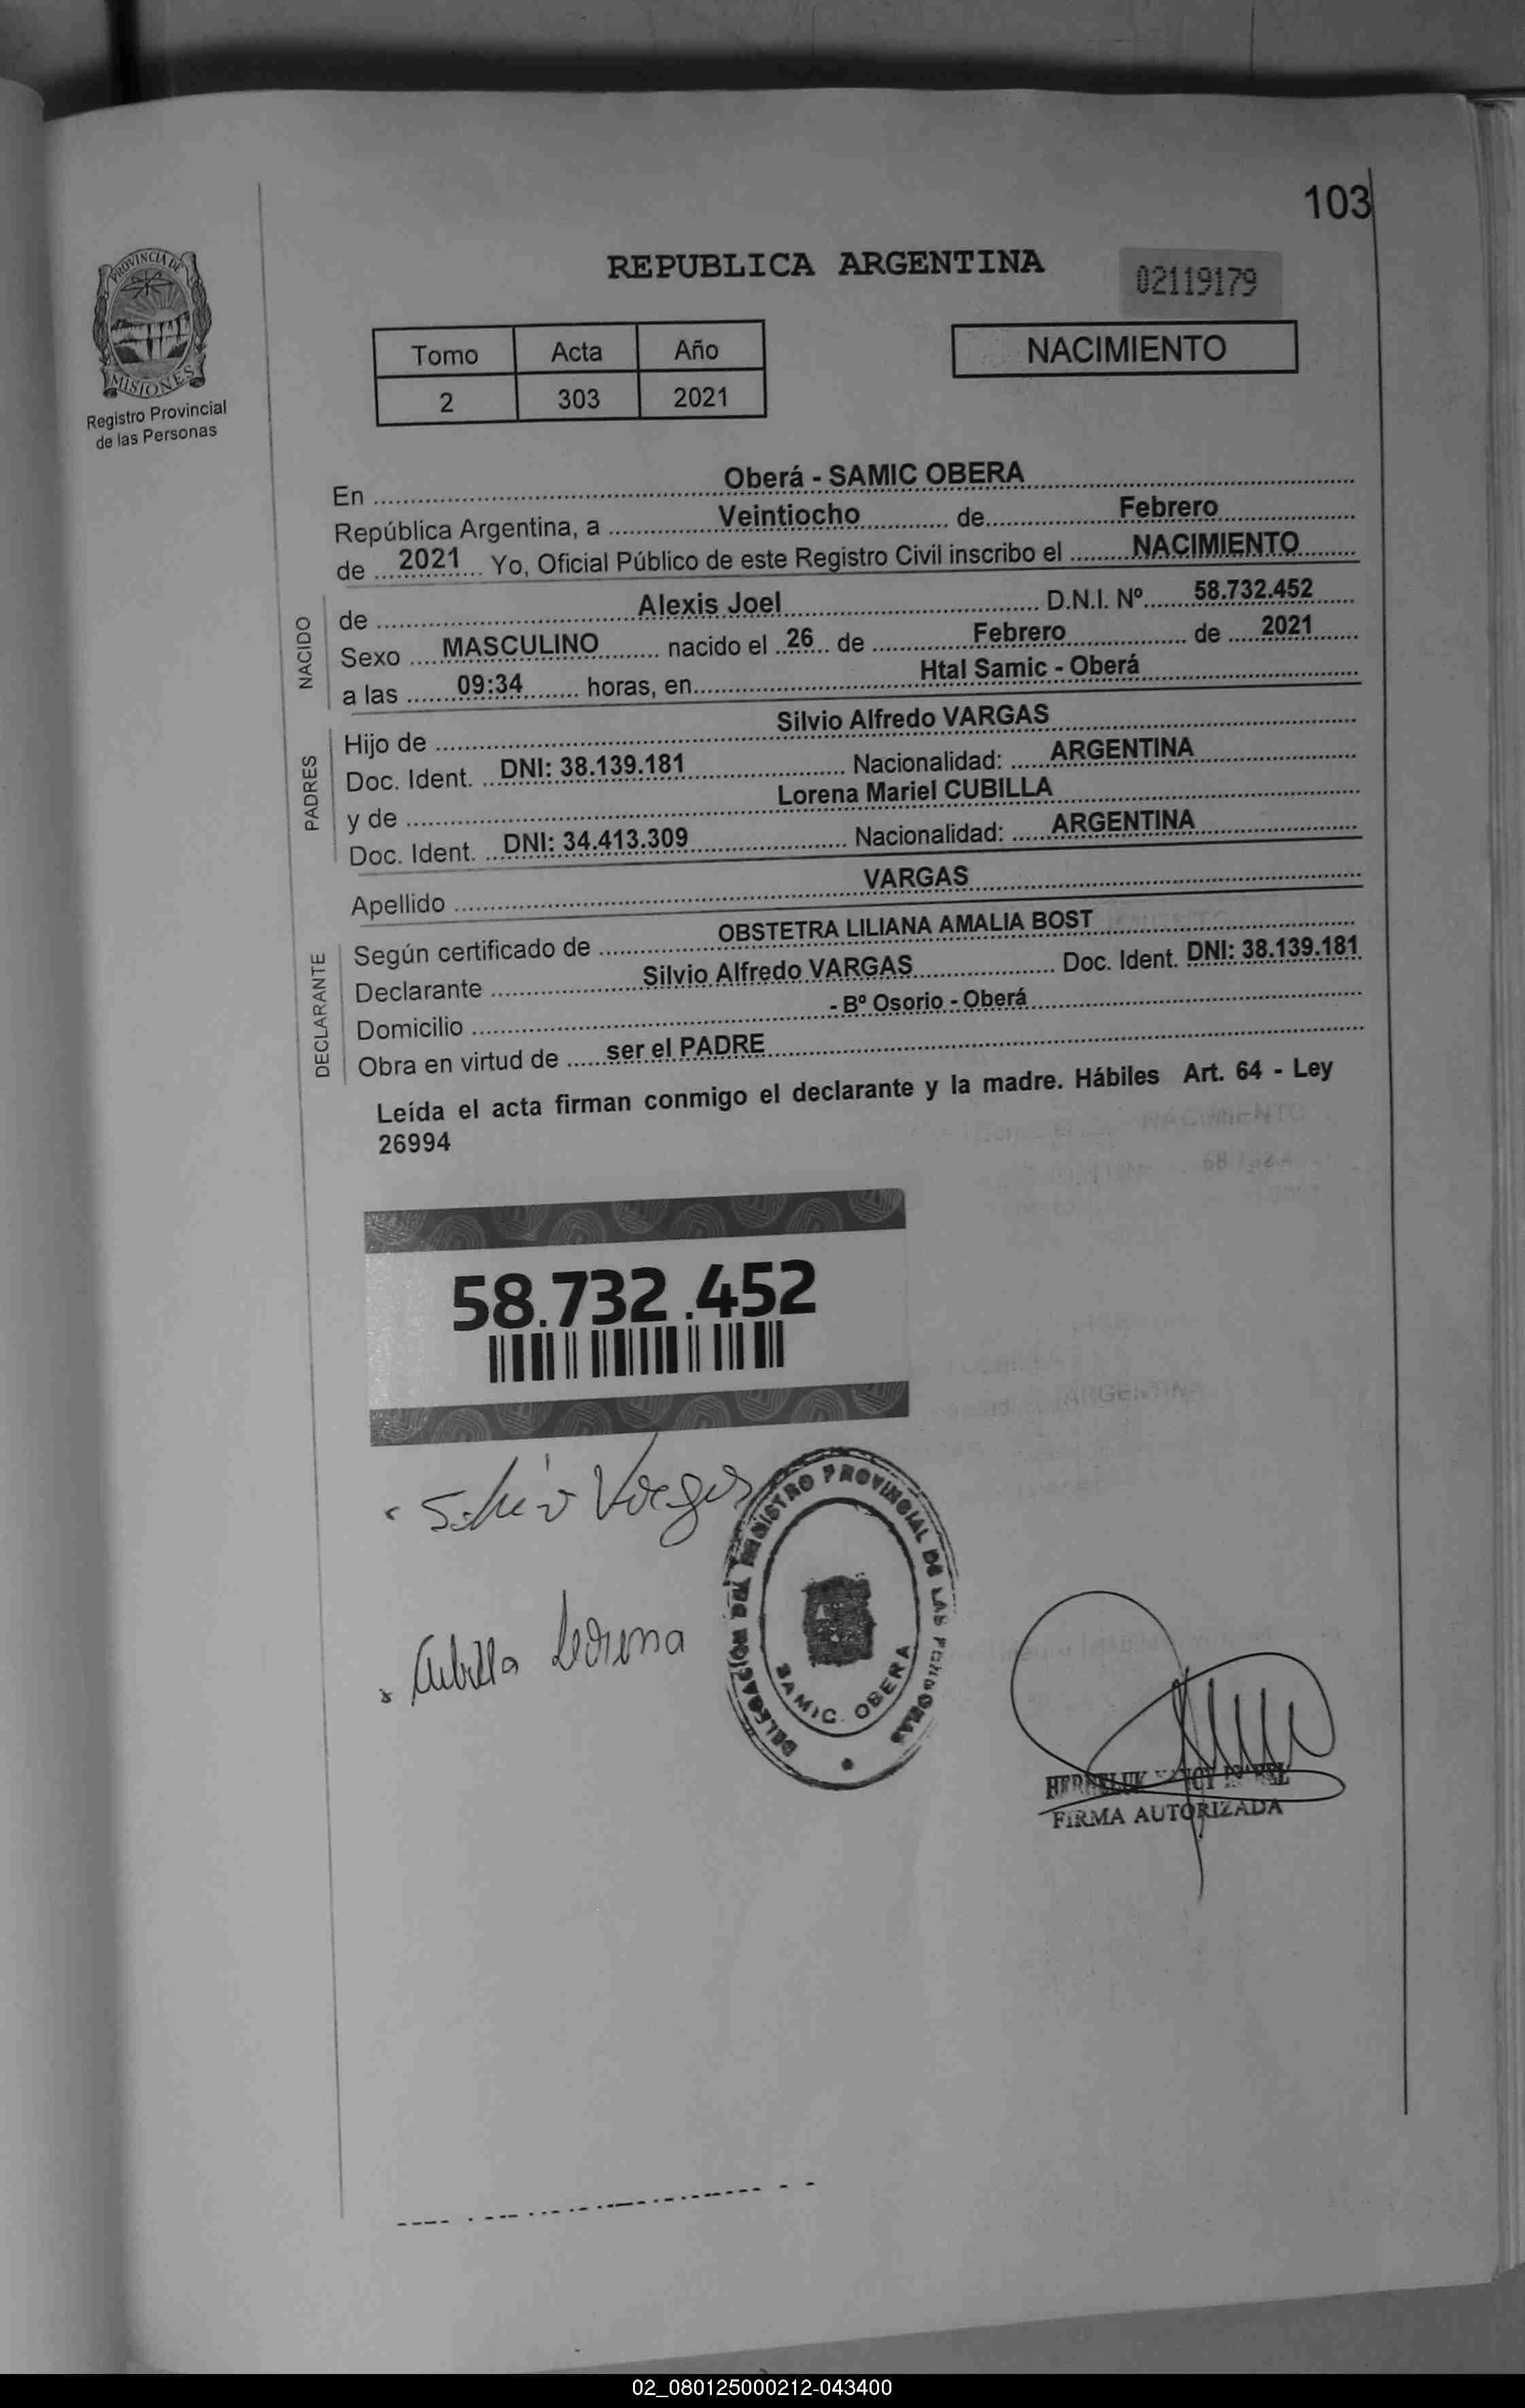 103
PROVINCIA DE
MISIONES
Registro Provincial
de las Personas
REPUBLICA ARGENTINA
02119179
Tomo Acta Año
2 303 2021
NACIMIENTO
En Oberá - SAMIC OBERA
República Argentina, a Veintiocho de Febrero
de 2021 Yo, Oficial Público de este Registro Civil inscribo el NACIMIENTO
NACIDO
de Alexis Joel D.N.I. Nº 58.732.452
Sexo MASCULINO nacido el 26 de Febrero de 2021
a las 09:34 horas, en Htal Samic - Oberá
PADRES
Hijo de Silvio Alfredo VARGAS
Doc. Ident. DNI: 38.139.181 Nacionalidad: ARGENTINA
y de Lorena Mariel CUBILLA
Doc. Ident. DNI: 34.413.309 Nacionalidad: ARGENTINA
Apellido VARGAS
DECLARANTE
Según certificado de OBSTETRA LILIANA AMALIA BOST
Declarante Silvio Alfredo VARGAS Doc. Ident. DNI: 38.139.181
Domicilio - Bº Osorio - Oberá
Obra en virtud de ser el PADRE
Leída el acta firman conmigo el declarante y la madre. Hábiles Art. 64 - Ley
26994
58.732.452
Silvio Vargas
Cubilla Lorena
DELEGACION DEL REGISTRO PROVINCIAL DE LAS PERSONAS
SAMIC OBERA
FIRMA AUTORIZADA
02_080125000212-043400